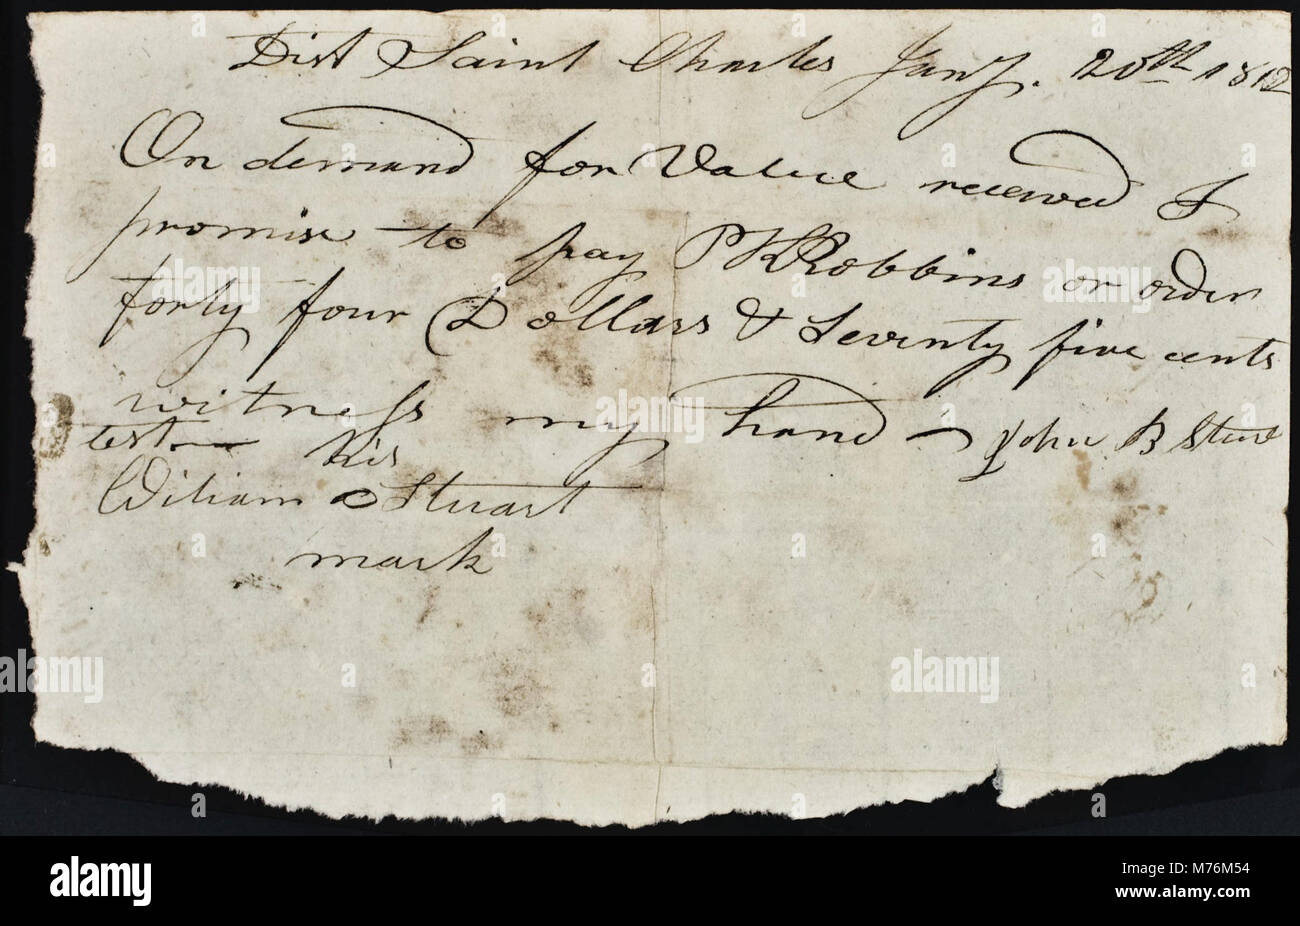 Dist Saint Charles Jany. 20th 1812
On demand for Value received I
promise to pay P K Robbins or order
forty four Dollars & Seventy five cents
witness my hand John B Stone
test his
William Stuart
mark
a alamy
alamy
Image ID: M76M54
www.alamy.com